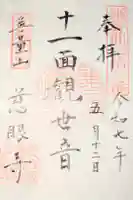 奉拝
令和七年
五月十二日
十一面観世音
無量山
慈眼寺